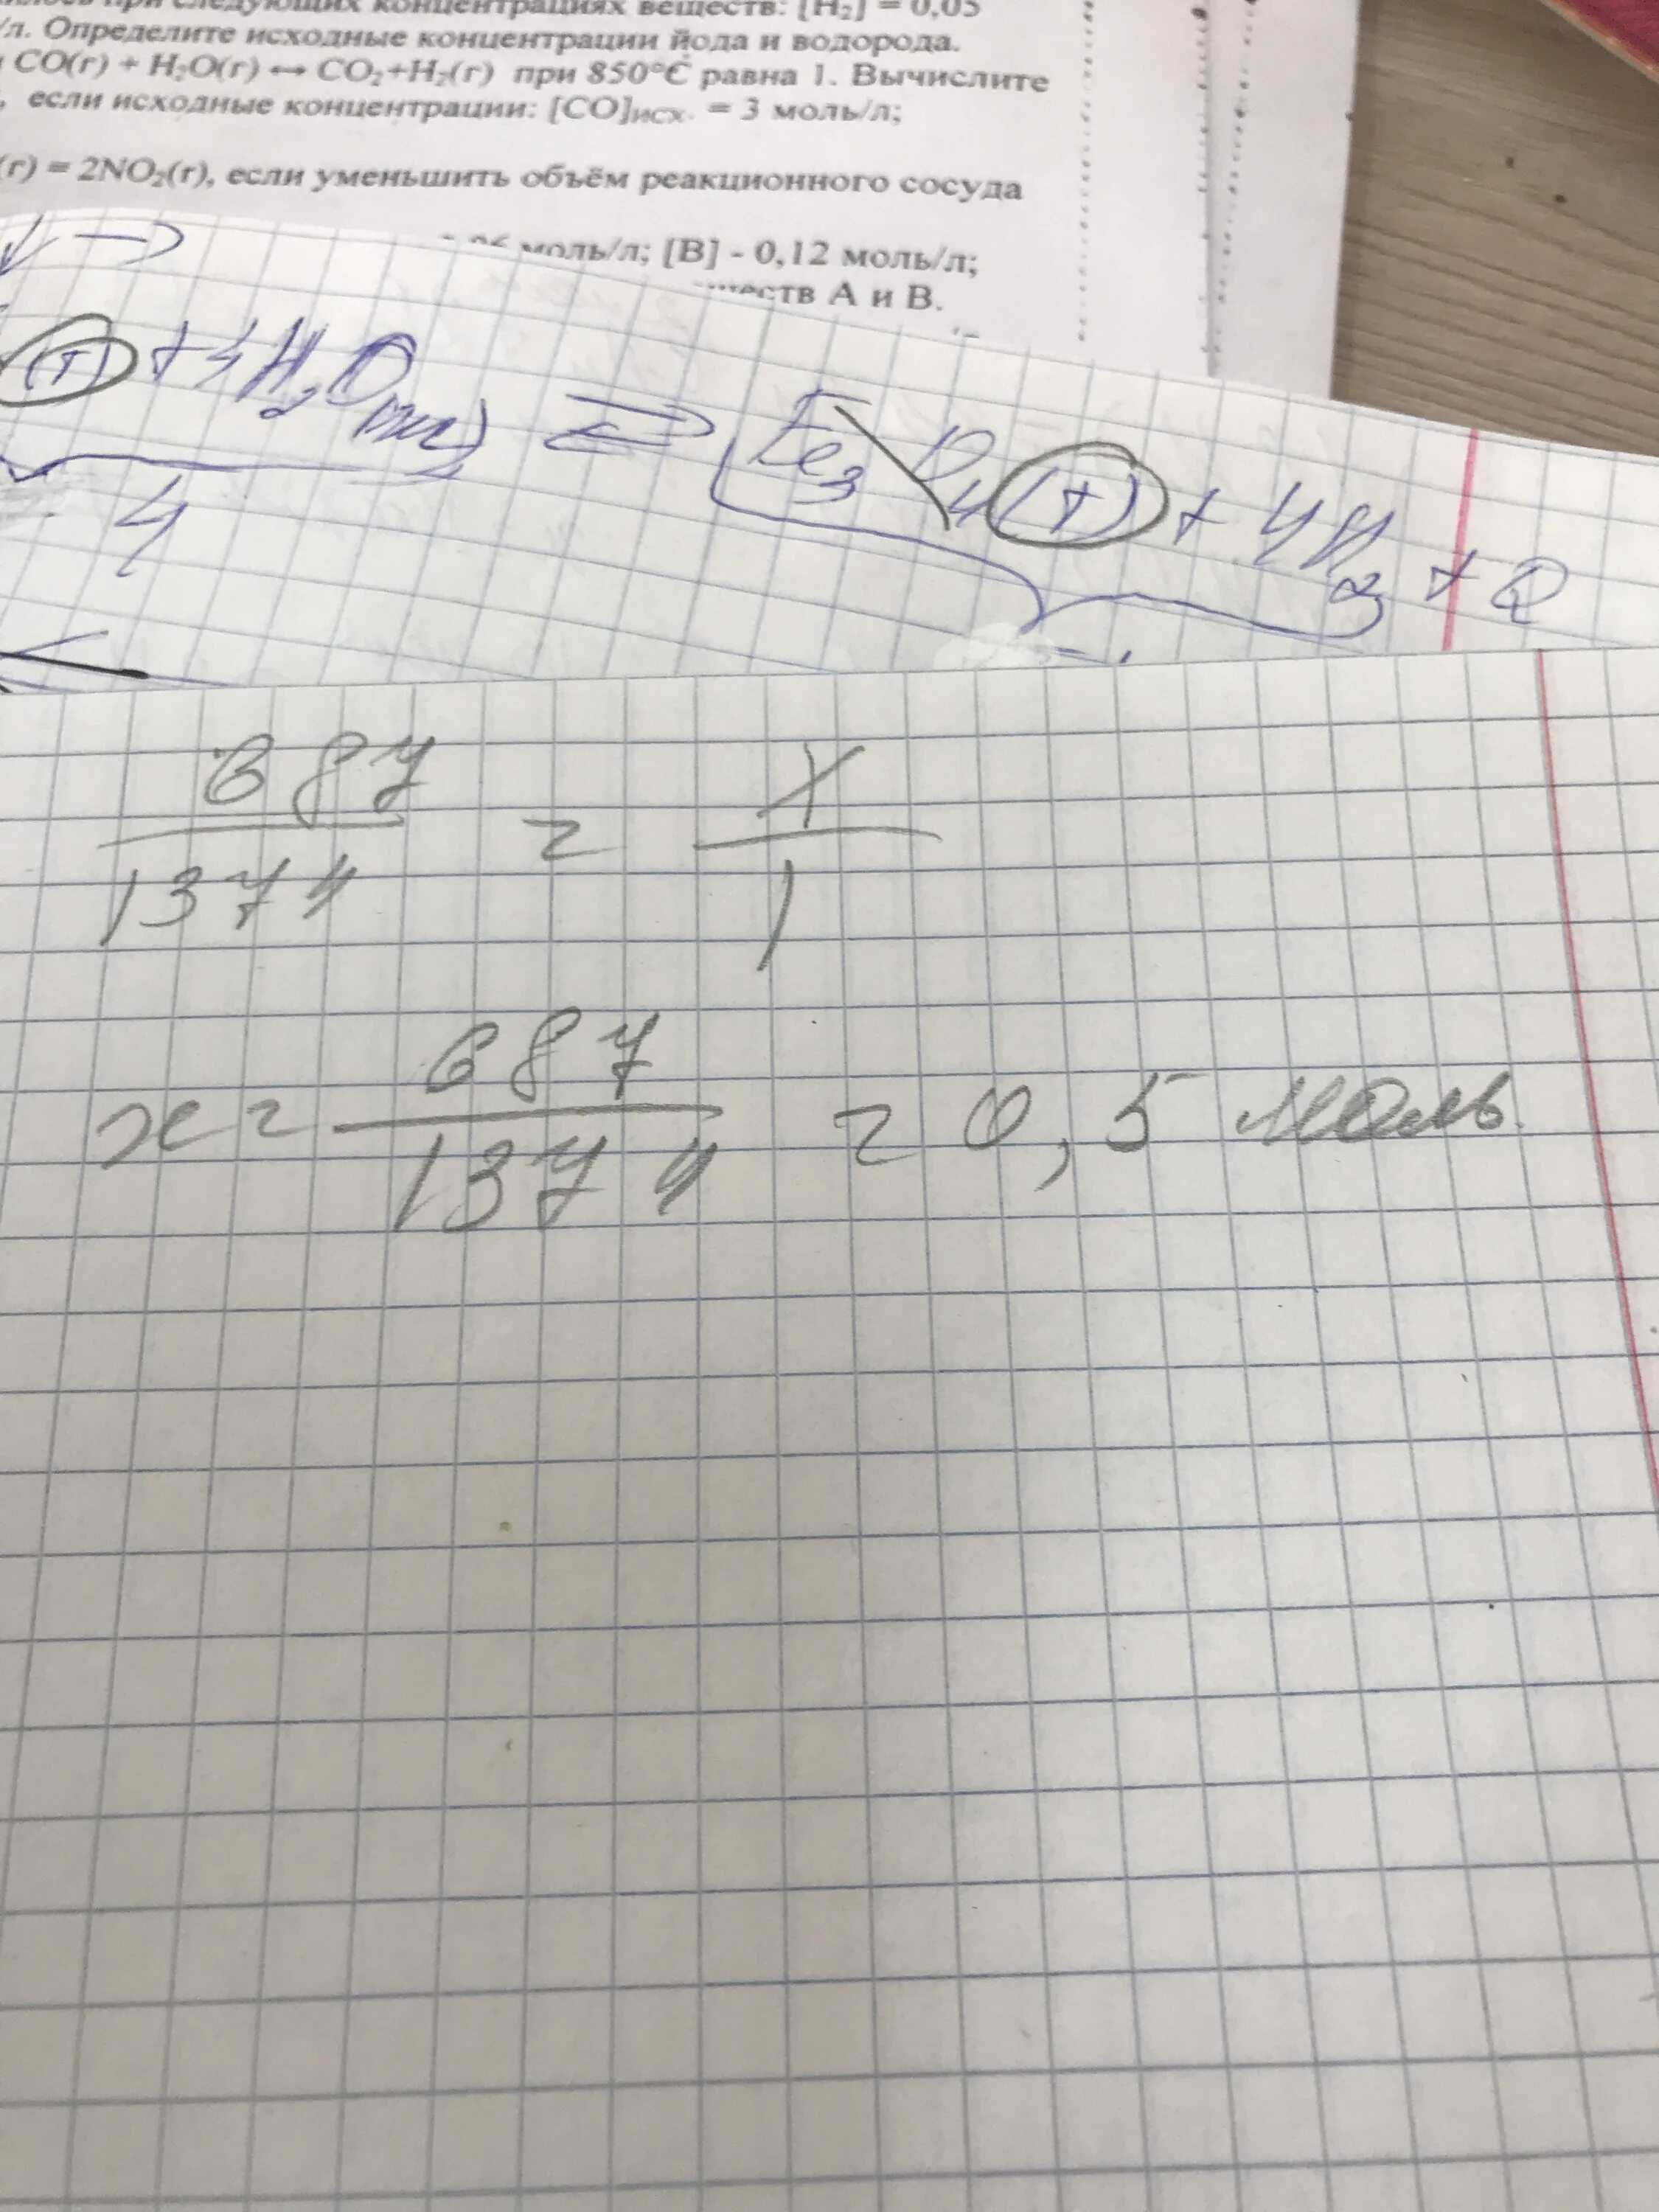 при следующих концентрациях веществ: [H₂] = 0,05
/л. Определите исходные концентрации йода и водорода.
CO(г) + H₂O(г) ↔ CO₂+H₂(г) при 850°C равна 1. Вычислите
, если исходные концентрации: [CO]исх. = 3 моль/л;
(г) = 2NO₂(г), если уменьшить объём реакционного сосуда
моль/л; [B] - 0,12 моль/л;
А и В.
(т) + 4H₂O ⇄ Fe₃O₄(т) + 4H₂ + Q
4
687
1374
=
x
1
x = 687
1374
= 0,5 моль